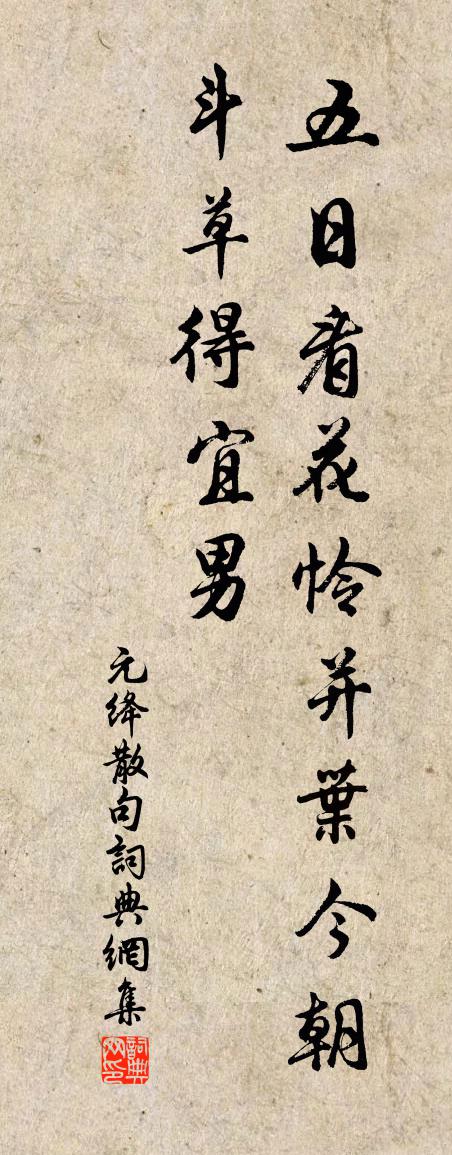 五日看花怜并葉今朝
斗草得宜男
元绛散句詞典網集
詞典网印